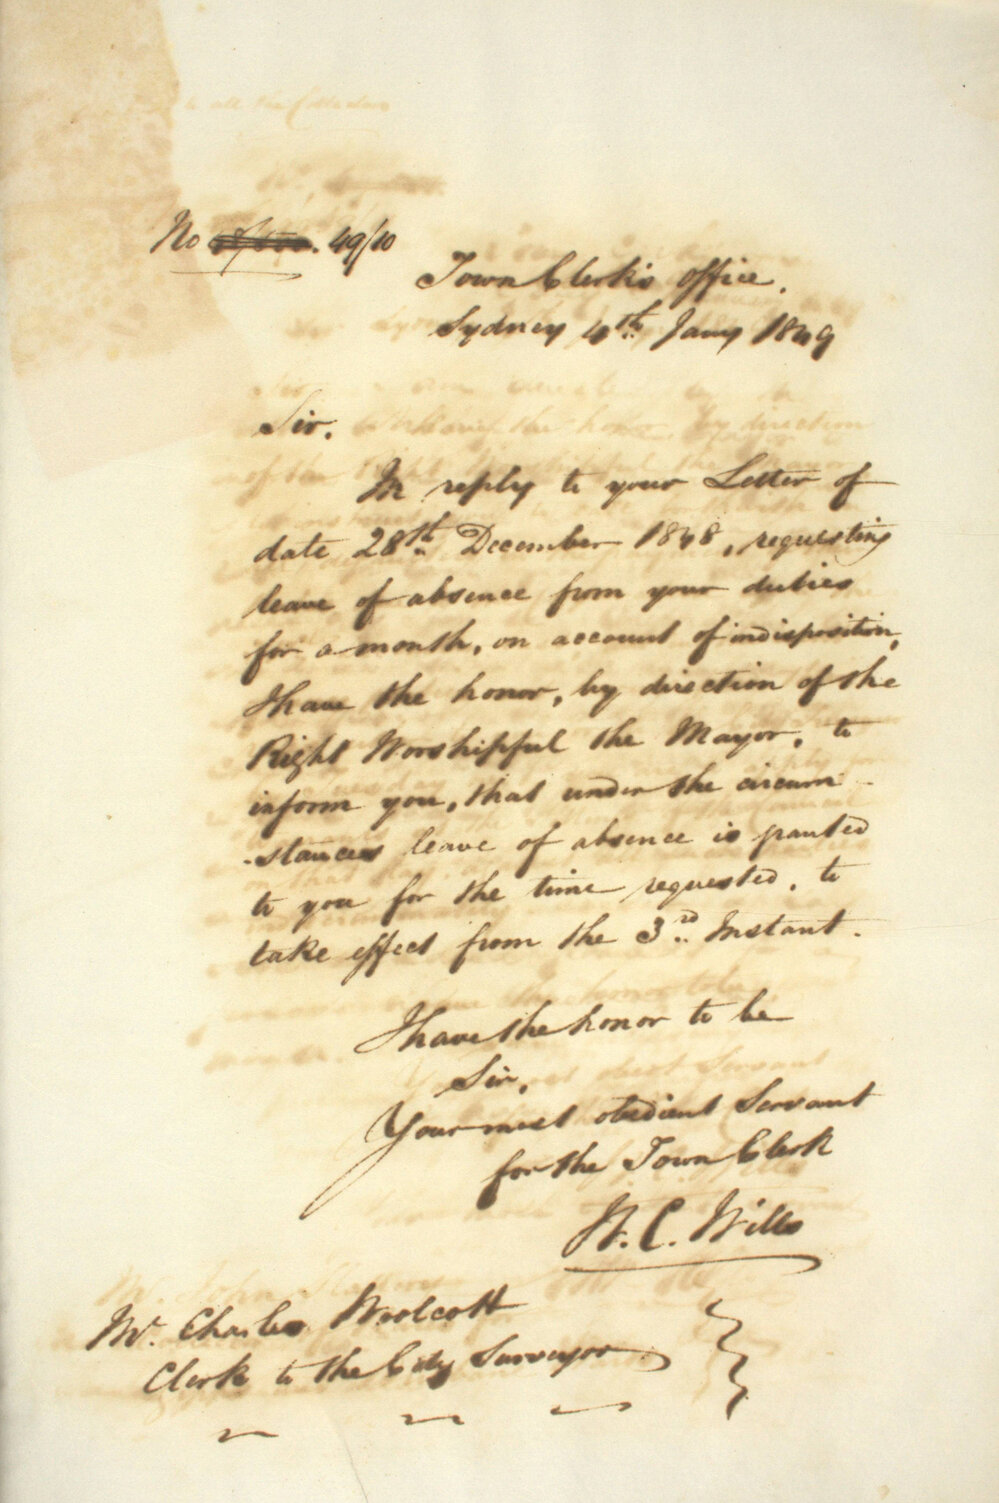 No 49/10
Town Clerk's Office,
Sydney 4th Jany 1849
Sir,
In reply to your Letter of
date 28th December 1848, requesting
leave of absence from your duties
for a month, on account of indisposition,
I have the honor, by direction of the
Right Worshipful the Mayor, to
inform you, that under the circum
-stances leave of absence is granted
to you for the time requested, to
take effect from the 3rd Instant.
I have the honor to be
Sir,
Your most obedient Servant
for the Town Clerk
W. C. Wills
Mr. Charles Woolcott
Clerk to the City Surveyor